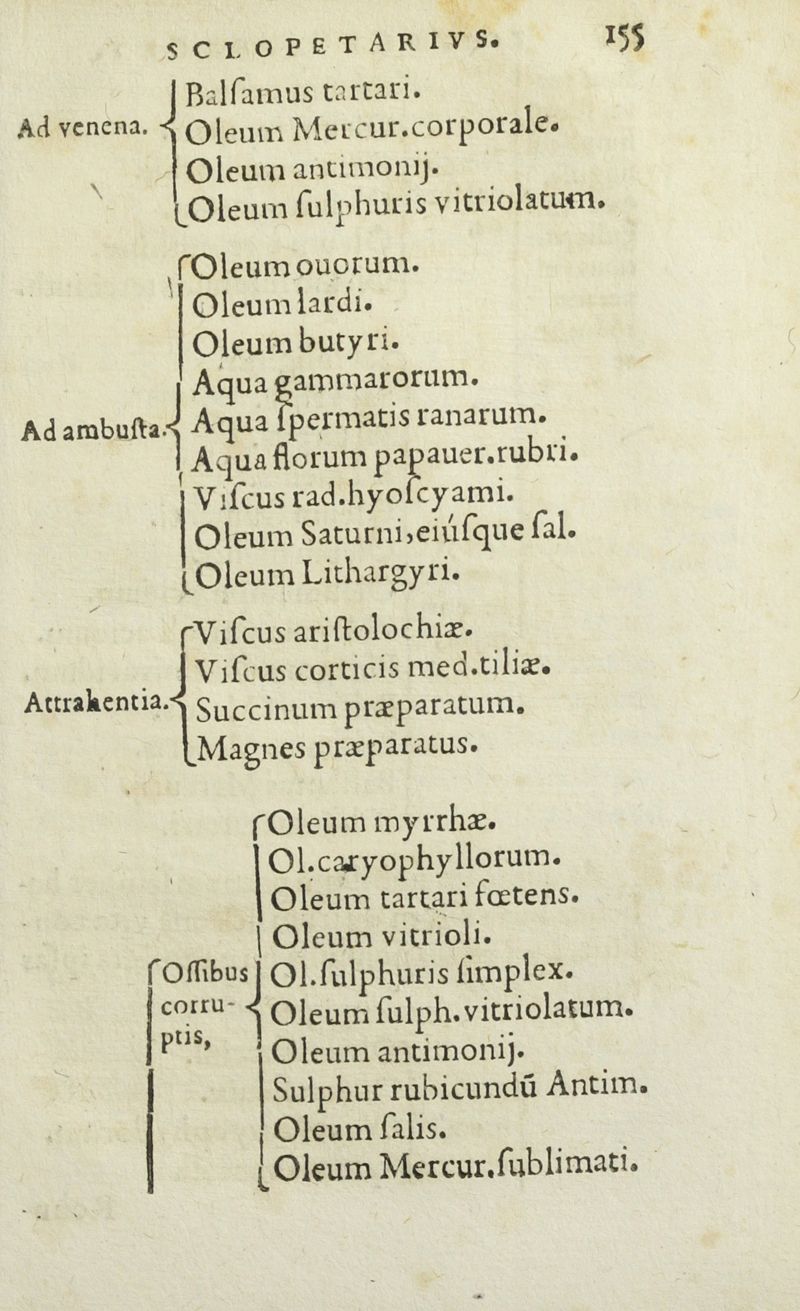 SCLOPETARIVS. 155
Balſamus tartari.
Ad venena. Oleum Mercur.corporale.
Oleum antimonij.
Oleum ſulphuris vitriolatum.
Oleum ouorum.
Oleum lardi.
Oleum butyri.
Aqua gammarorum.
Ad ambuſta. Aqua ſpermatis ranarum.
Aqua florum papauer.rubri.
Viſcus rad.hyoſcyami.
Oleum Saturni,eiúſque ſal.
Oleum Lithargyri.
Viſcus ariſtolochiæ.
Viſcus corticis med.tiliæ.
Attrahentia. Succinum præparatum.
Magnes præparatus.
Oleum myrrhæ.
Ol.caryophyllorum.
Oleum tartari fœtens.
Oleum vitrioli.
Oſſibus Ol.ſulphuris ſimplex.
corru- Oleum ſulph.vitriolatum.
ptis, Oleum antimonij.
Sulphur rubicundū Antim.
Oleum ſalis.
Oleum Mercur.ſublimati.